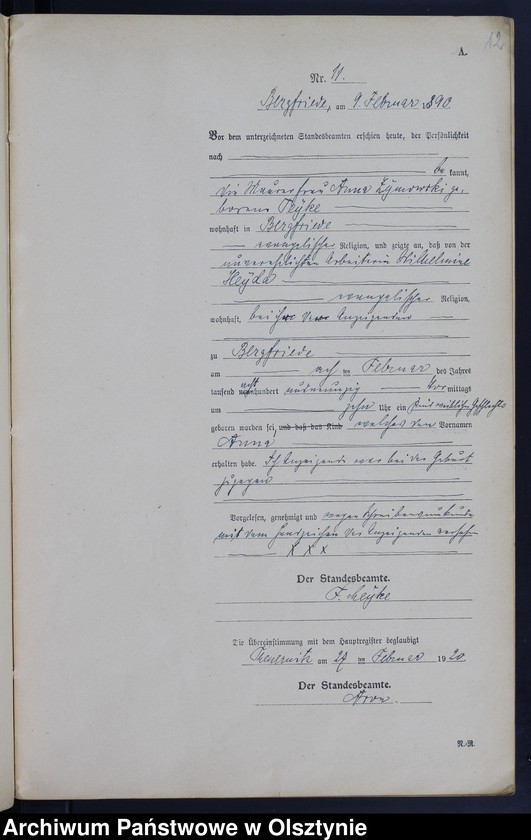 12
A.
Nr. 11.
Bergfriede, am 9. Februar 1890
Vor dem unterzeichneten Standesbeamten erschien heute, der Persönlichkeit
nach
be kannt,
die Maurerfrau Anna Zymowski ge-
borene
wohnhaft in Bergfriede
evangelischer Religion, und zeigte an, daß von der
unverehelichten Arbeiterin Wilhelmine
Heyda
evangelischer Religion,
wohnhaft bei ihr der Anzeigenden
zu Bergfriede
am acht ten Februar des Jahres
tausend acht hundert und neunzig Vor mittags
um zehn Uhr ein Kind weiblichen Geschlechts
geboren worden sei, und daß das Kind welches den Vornamen
Anna
erhalten habe. Anzeigende war bei der Geburt
zugegen
Vorgelesen, genehmigt und wegen Schreibensunkunde
mit dem Handzeichen der Anzeigenden versehen
X X X
Der Standesbeamte.
F.
Die Übereinstimmung mit dem Hauptregister beglaubigt
am 27 ten Februar 1920.
Der Standesbeamte.
N.-R.
Archiwum Państwowe w Olsztynie